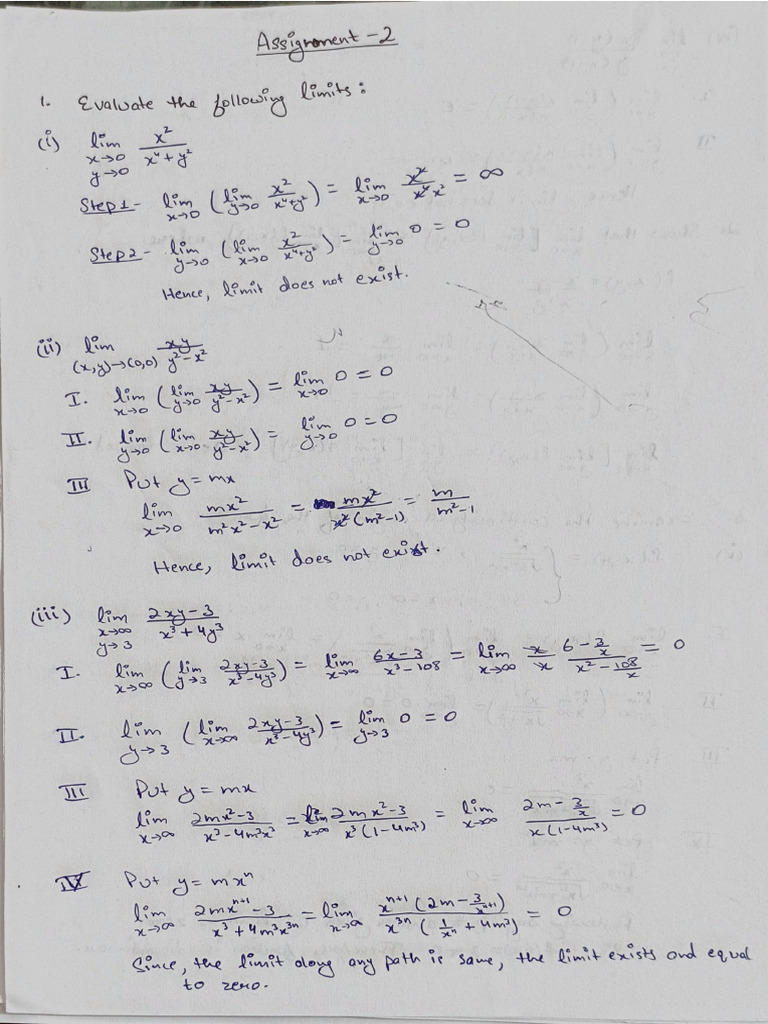 Assignment - 2
1. Evaluate the following limits:
(i) lim x→0 y→0 x²/(x⁴+y²)
Step 1 - lim x→0 (lim y→0 x²/(x⁴+y²)) = lim x→0 x²/(x⁴ x²) = ∞
Step 2 - lim y→0 (lim x→0 x²/(x⁴+y²)) = lim y→0 0 = 0
Hence, limit does not exist.
(ii) lim (x,y)→(0,0) xy/(y²-x²)
I. lim x→0 (lim y→0 xy/(y²-x²)) = lim x→0 0 = 0
II. lim y→0 (lim x→0 xy/(y²-x²)) = lim y→0 0 = 0
III Put y = mx
lim x→0 mx²/(m²x²-x²) = mx²/(x²(m²-1)) = m/(m²-1)
Hence, limit does not exist.
(iii) lim x→∞ y→3 (2xy-3)/(x³+4y³)
I. lim x→∞ (lim y→3 (2xy-3)/(x³-4y³)) = lim x→∞ (6x-3)/(x³-108) = lim x→∞ x/x (6-3/x)/(x²-108/x) = 0
II. lim y→3 (lim x→∞ (2xy-3)/(x³-4y³)) = lim y→3 0 = 0
III Put y = mx
lim x→∞ (2mx²-3)/(x³-4m³x³) = lim x→∞ (2mx²-3)/(x³(1-4m³)) = lim x→∞ (2m-3/x)/(x(1-4m³)) = 0
IV Put y = mxⁿ
lim x→∞ (2mxⁿ⁺¹-3)/(x³+4m³x³ⁿ) = lim x→∞ xⁿ⁺¹(2m-3/xⁿ⁺¹)/(x³ⁿ(1/xⁿ+4m³)) = 0
Since, the limit along any path is same, the limit exists and equal
to zero.